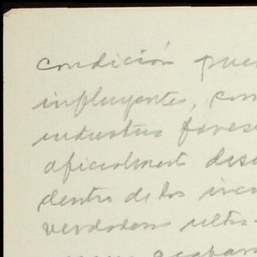 condición pue
influyentes, com
industria fores
oficialmente des
dentro de los inc
verdadera ultra